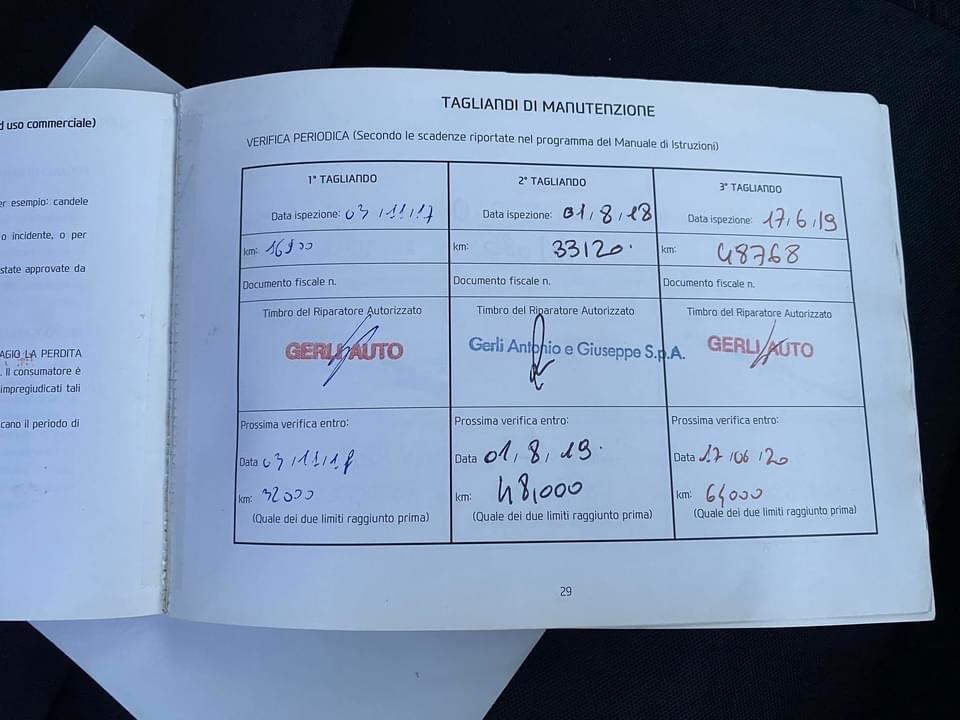 d uso commerciale)
er esempio: candele
o incidente, o per
state approvate da
AGIO LA PERDITA
. Il consumatore è
impregiudicati tali
cano il periodo di
TAGLIANDI DI MANUTENZIONE
VERIFICA PERIODICA (Secondo le scadenze riportate nel programma del Manuale di Istruzioni)
1° TAGLIANDO
Data ispezione: 03/11/17
km:
Documento fiscale n.
Timbro del Riparatore Autorizzato
GERLI AUTO
Prossima verifica entro:
Data 03/11/18
km: 32000
(Quale dei due limiti raggiunto prima)
2° TAGLIANDO
Data ispezione: 01,8,18
km: 33120
Documento fiscale n.
Timbro del Riparatore Autorizzato
Gerli Antonio e Giuseppe S.p.A.
Prossima verifica entro:
Data 01,8,19
km: 48,000
(Quale dei due limiti raggiunto prima)
3° TAGLIANDO
Data ispezione: 17,6,19
km: 48768
Documento fiscale n.
Timbro del Riparatore Autorizzato
GERLI AUTO
Prossima verifica entro:
Data 17/06/20
km: 64000
(Quale dei due limiti raggiunto prima)
29